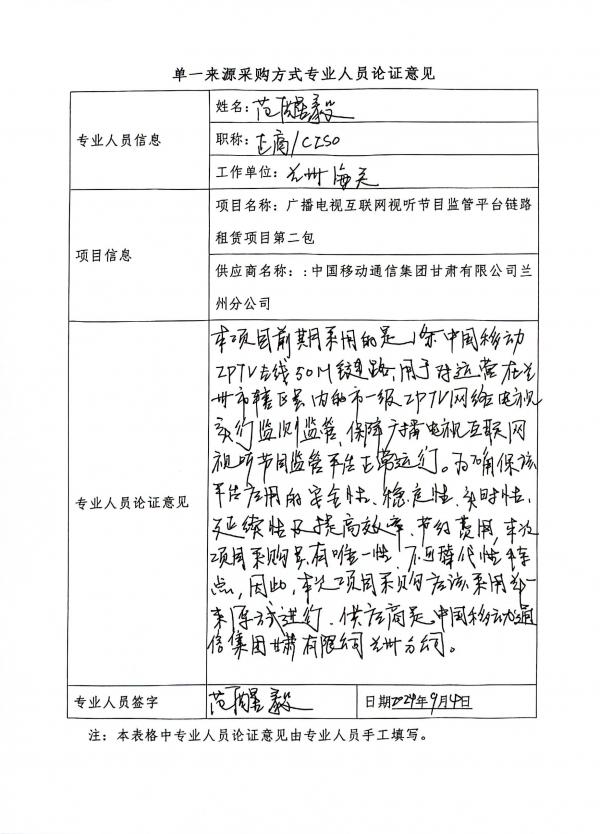 单一来源采购方式专业人员论证意见
专业人员信息
姓名：范毅
职称：正高/CISO
工作单位：兰州海关
项目信息
项目名称：广播电视互联网视听节目监管平台链路
租赁项目第二包
供应商名称：:中国移动通信集团甘肃有限公司兰
州分公司
专业人员论证意见
本项目前期采用的是1条中国移动
IPTV专线50M链路，用于对运营在兰
州市辖区县内的市一级IPTV网络电视
实行监测监管，保障广播电视互联网
视听节目监管平台正常运行。为确保该
平台应用的安全性、稳定性、实时性、
延续性及提高效率、节约费用，本次
项目采购具有唯一性、不可替代性特
点，因此，本次项目采购应该采用单一
来源方式进行，供应商是中国移动通
信集团甘肃有限公司兰州分公司。
专业人员签字
范毅
日期2024年9月4日
注：本表格中专业人员论证意见由专业人员手工填写。